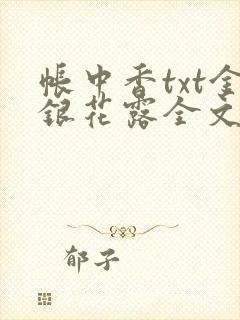 帐中香txt金
银花露全文
郁子